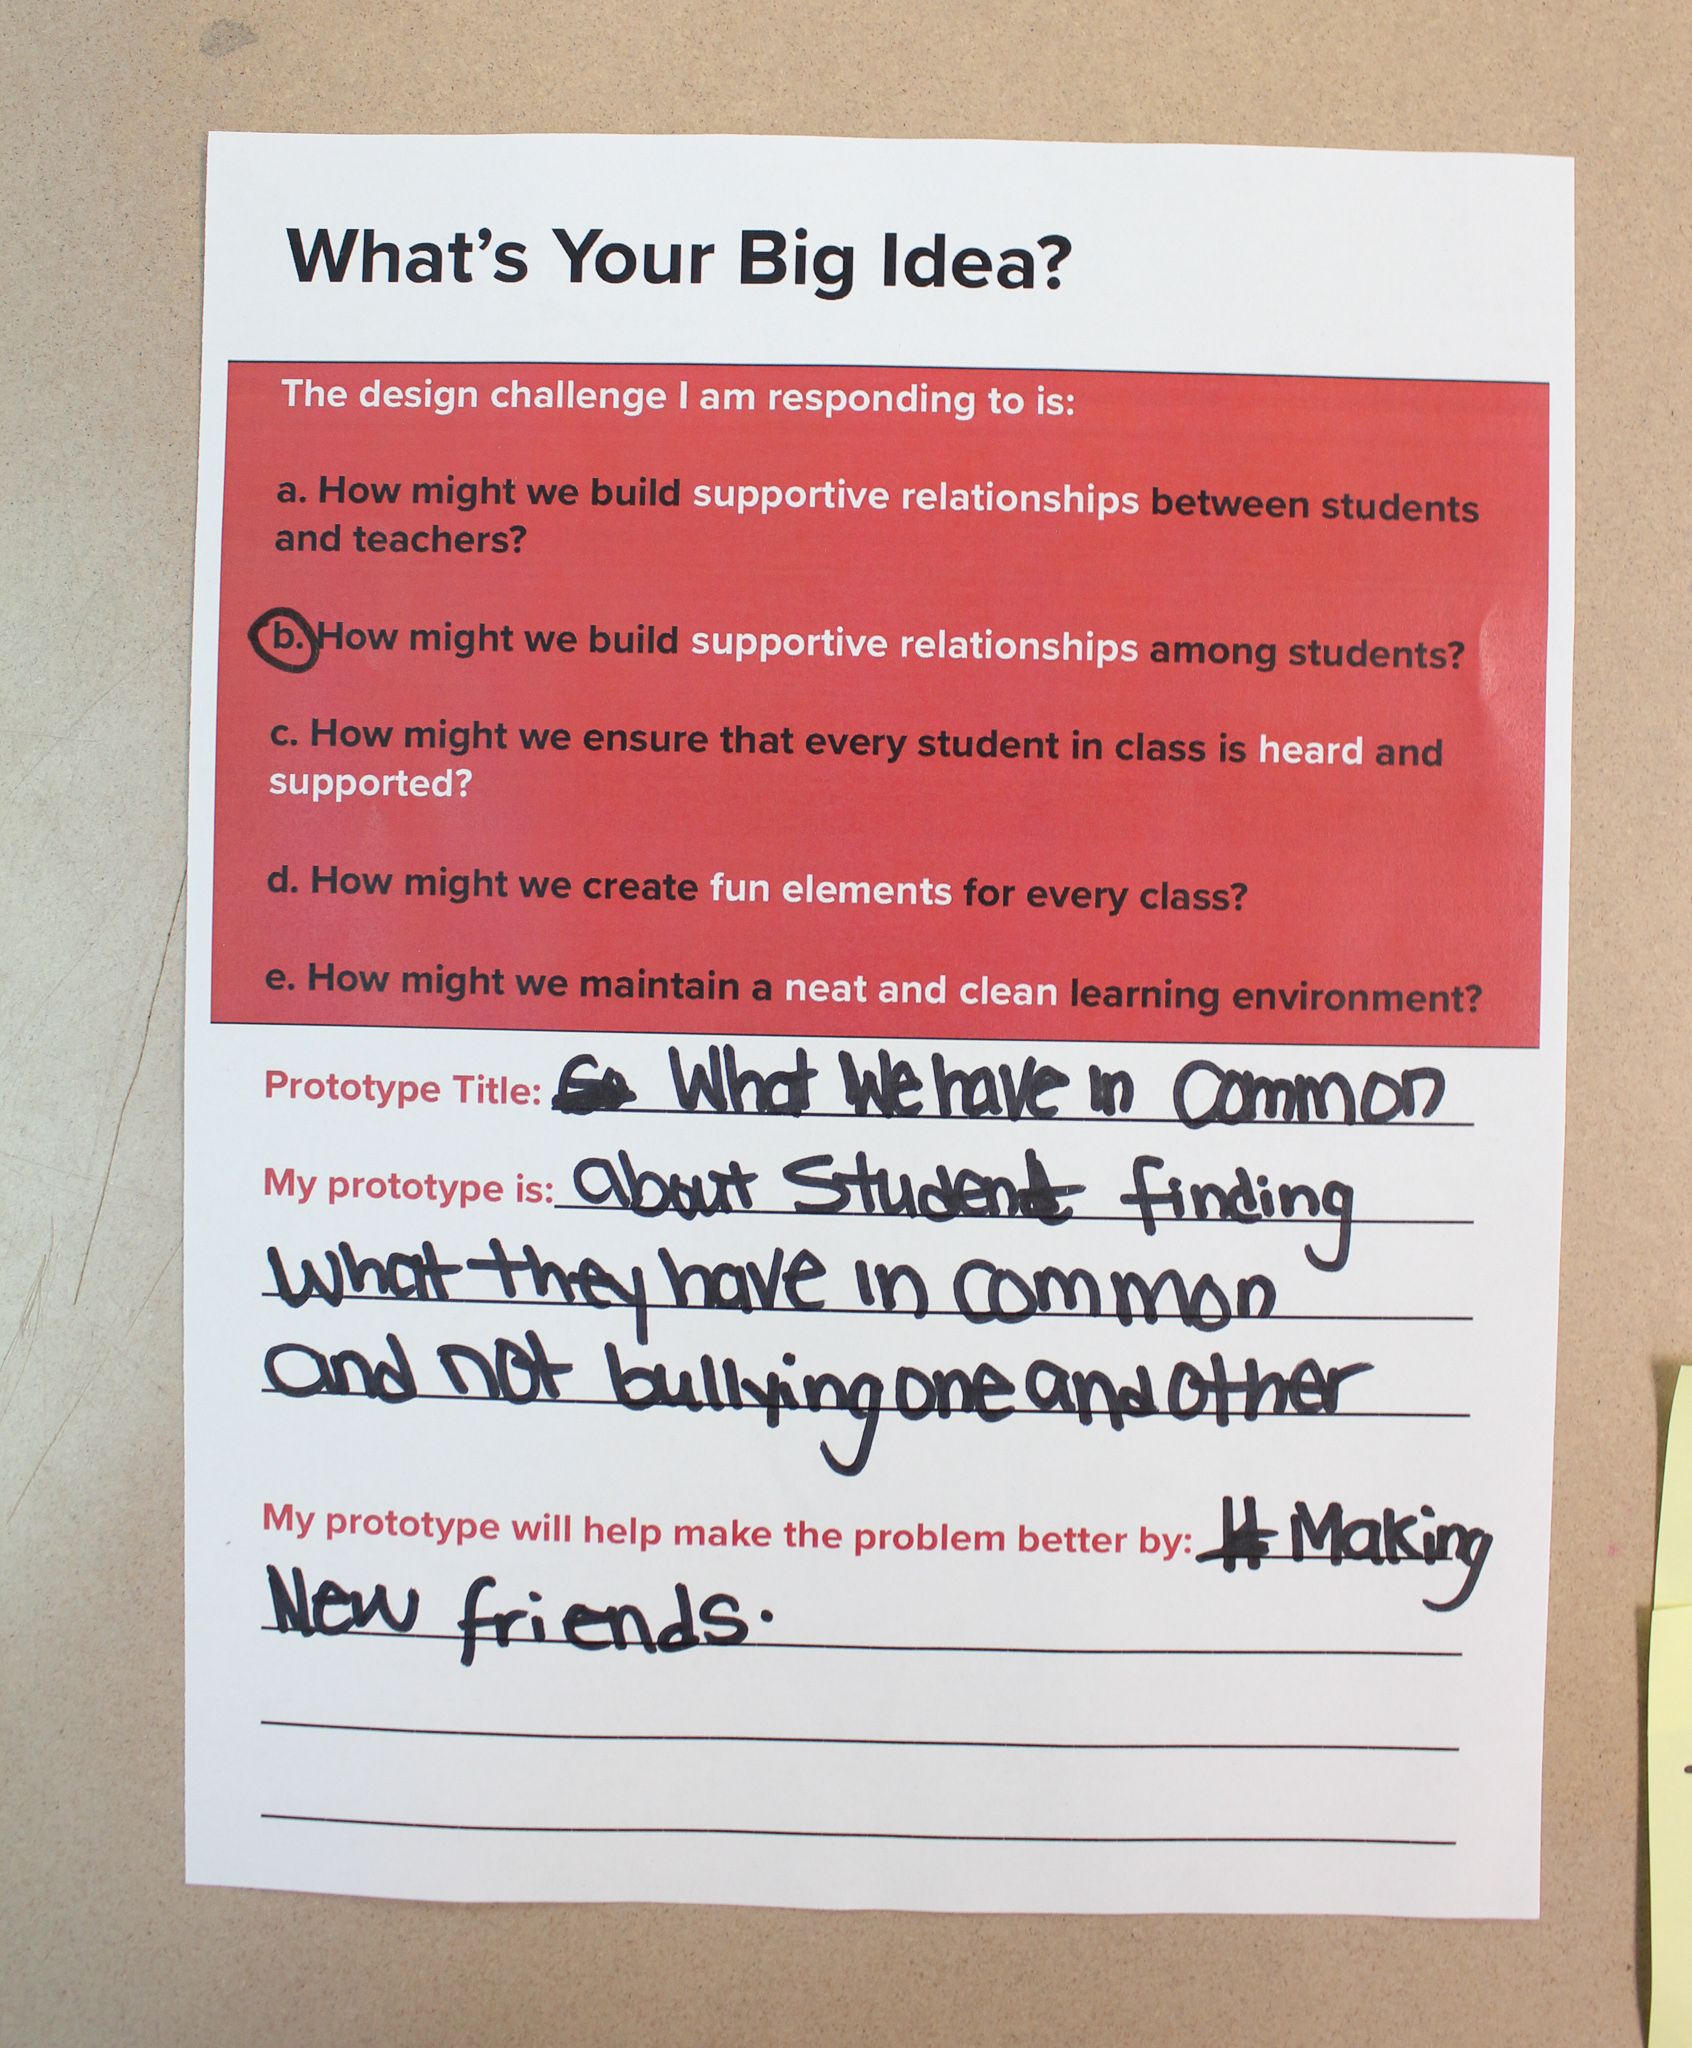 What's Your Big Idea?
The design challenge I am responding to is:
a. How might we build supportive relationships between students
and teachers?
b. How might we build supportive relationships among students?
c. How might we ensure that every student in class is heard and
supported?
d. How might we create fun elements for every class?
e. How might we maintain a neat and clean learning environment?
Prototype Title: What We have in Common
My prototype is: about Student finding
what they have in common
and not bullying one and other
My prototype will help make the problem better by: Making
New friends.